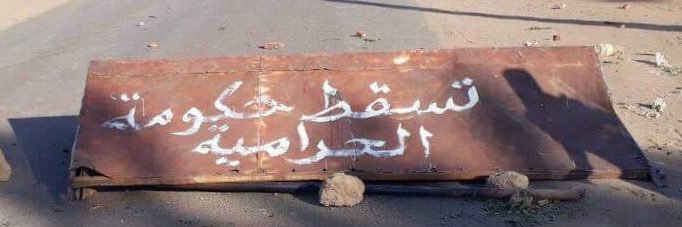 تسقط حكومة
الحرامية